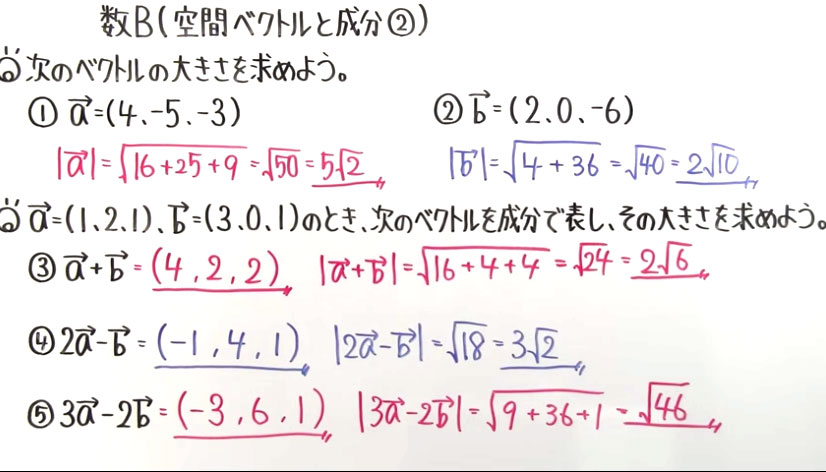 数B(空間ベクトルと成分②)
次のベクトルの大きさを求めよう。
① a⃗=(4、-5、-3) ② b⃗=(2、0、-6)
|a⃗|=√(16+25+9)=√50=5√2 |b⃗|=√(4+36)=√40=2√10
a⃗=(1、2、1)、b⃗=(3、0、1)のとき、次のベクトルを成分で表し、その大きさを求めよう。
③ a⃗+b⃗=(4,2,2) |a⃗+b⃗|=√(16+4+4)=√24=2√6
④ 2a⃗-b⃗=(-1,4,1) |2a⃗-b⃗|=√18=3√2
⑤ 3a⃗-2b⃗=(-3,6,1) |3a⃗-2b⃗|=√(9+36+1)=√46